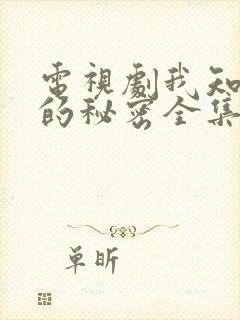 電視劇我知
的秘密全集
單昕